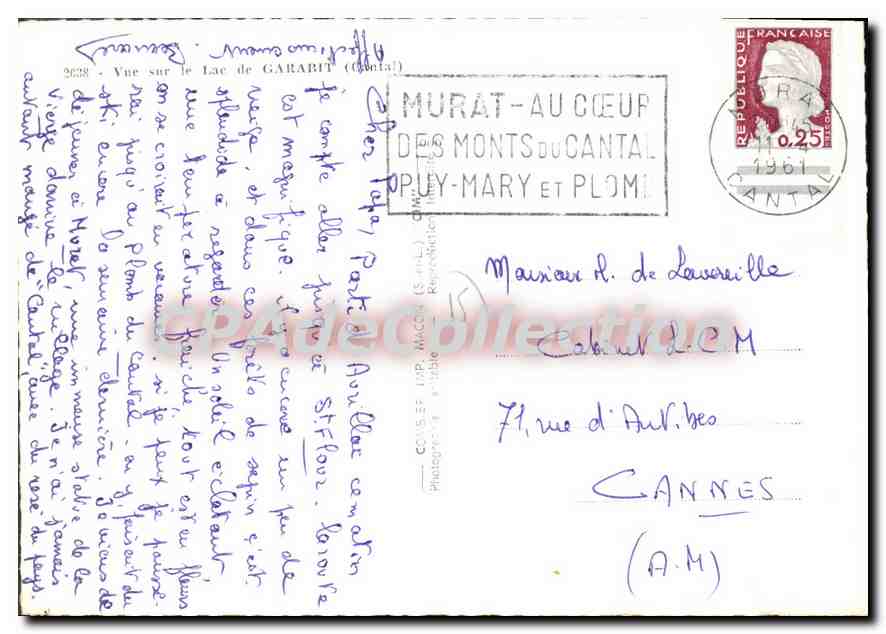 2038 - Vue sur le Lac de GARABIT (Cantal)
Cher Papa, Parti d'Aurillac ce matin
je compte aller jusqu'à St. Flour. La route
est magnifique. il y a encore un peu de
neige, et dans ces forêts de sapin c'est
splendide à regarder. Un soleil éclatant,
une température fraîche, tout est en fleurs
on se croirait en vacances. si je peux je pousse-
rai jusqu'au Plomb du Cantal - on y faisait du
ski encore la semaine dernière. Je viens de
déjeuner à Murat, une immense statue de la
Vierge domine le village. Je n'ai jamais
autant mangé de "Cantal" avec du rosé du pays.
Affectueusement.
MURAT - AU CŒUR
DES MONTS DU CANTAL
PUY-MARY ET PLOMB
RÉPUBLIQUE FRANÇAISE
0,25
MURAT
11 - 4
1961
CANTAL
CONSIER IMP. MACON (S.-et-L.)
Reproduction Interdite
15
Monsieur A. de Lavereille
Cabinet L.C.M
71, rue d'Antibes
CANNES
(A.M)
CPAdeCollection.com